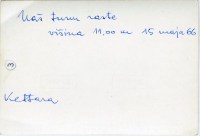 Náš turm raste
višina 11,00 m 15 maja 66
19
Kettara